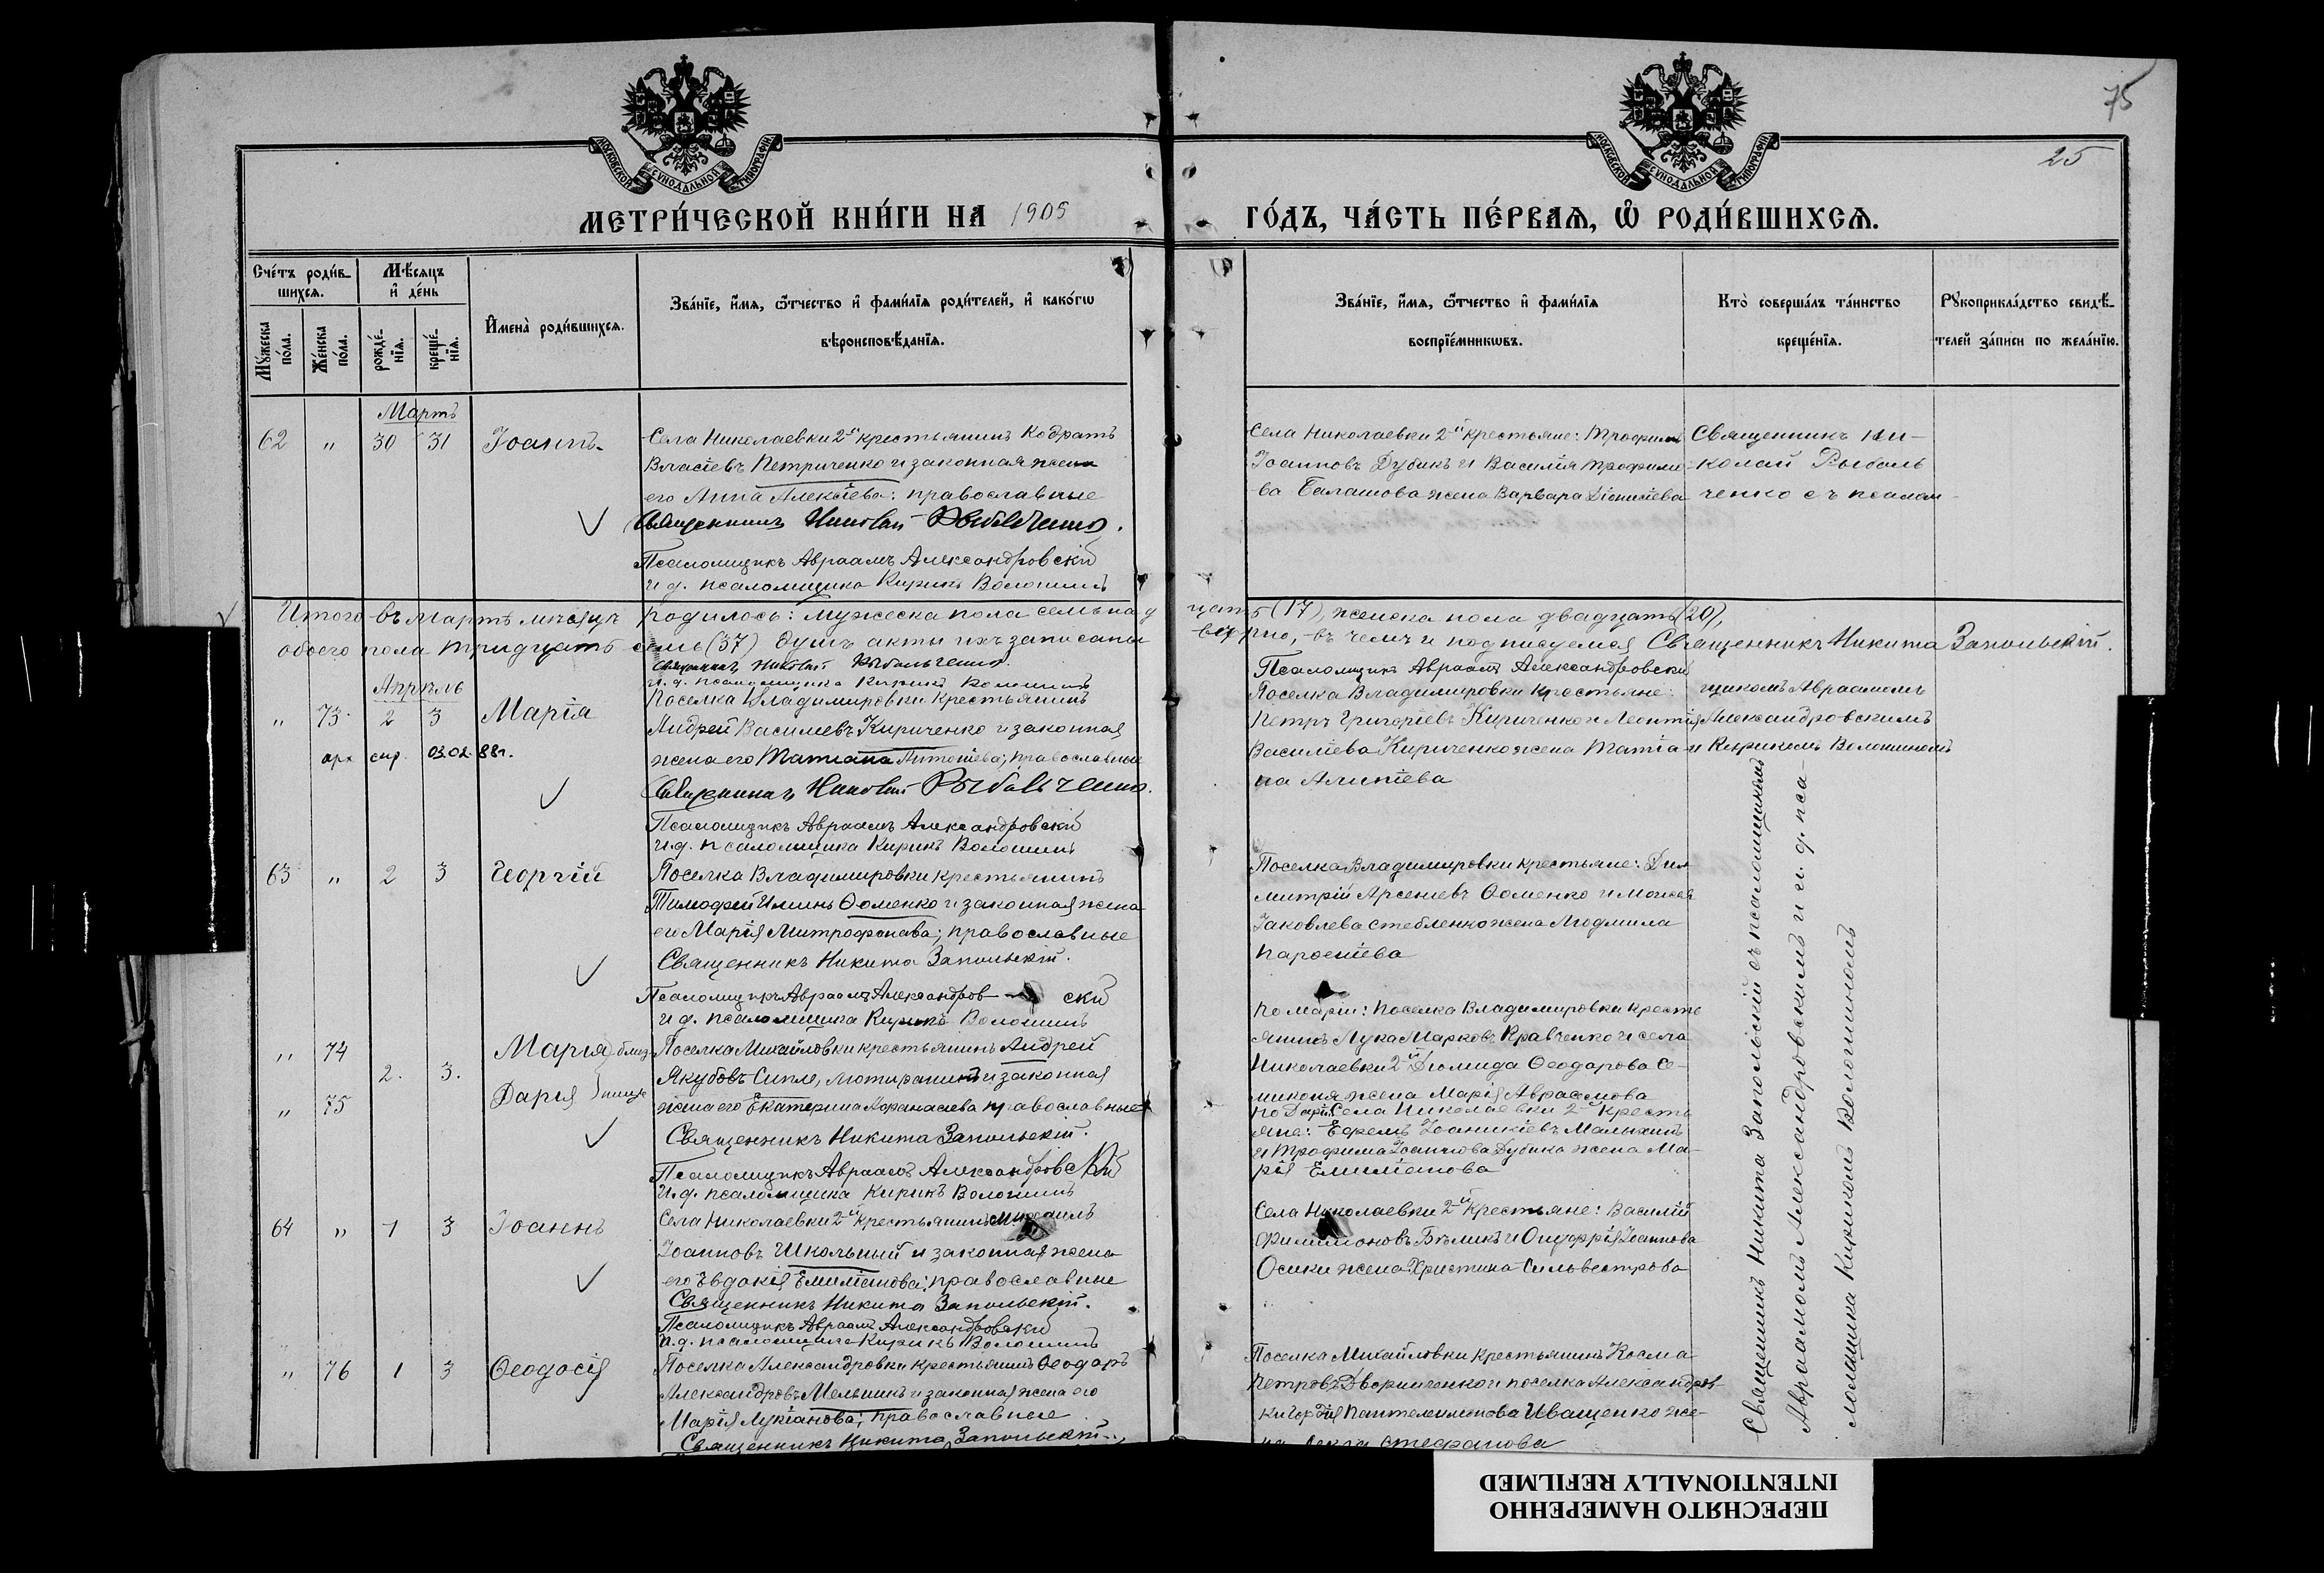 75
25
МОСКОВСКОЙ СѴНОДАЛЬНОЙ ТИПОГРАФІИ
МОСКОВСКОЙ СѴНОДАЛЬНОЙ ТИПОГРАФІИ
МЕТРИ́ЧЕСКОЙ КНИ́ГИ НА 1905
ГО́ДЪ, ЧА́СТЬ ПЕ́РВАЯ, Ѽ РОДИ́ВШИХСЯ.
Сче́тъ роди́в-
шихся.
Мѣ́сяцъ
и҆ де́нь
Мꙋ́жеска по́ла.
Же́нска по́ла.
рожде́-
нїѧ.
креще́-
нїѧ.
И҆мена̀ роди́вшихсѧ.
Зва́нїе, и҆́мѧ, ѻ҆́тчество и҆ фами́лїѧ роди́телей, и҆ како́гѡ
вѣроисповѣ́данїѧ.
Зва́нїе, и҆́мѧ, ѻ҆́тчество и҆ фами́лїѧ
воспрїе́мникѡвъ.
Кто̀ соверша́лъ та́инство
креще́нїѧ.
Рꙋкоприкла́дство свидѣ́-
телей за́писи по жела́нїю.
Мартъ
62 " 30 31 Іоаннъ
Села Николаевки 2й крестьянинъ Кодратъ
Власіевъ Петриченко и законная жена
его Анна Алексіева: православные
Священникъ Николай Рыбальченко.
Псаломщикъ Авраамъ Александровскій
и д. псаломщика Кирикъ Волошинъ
Села Николаевки 2й крестьяне: Трофимъ
Іоанновъ Дубикъ и Василія Трофимо-
ва Балашова жена Варвара Діонисіева
Священникъ Ни-
колай Рыбаль
ченко съ псалом-
Итого въ мартѣ мѣсяцѣ родилось: мужеска пола семьнад
цать (17), женска пола двадцать (20),
обоего пола тридцать семь (37) душъ акты ихъ записаны
вѣрно, въ чемъ и подписуемся Священникъ Никита Запольскій.
Священникъ Николай Рыбальченко.
и. д. псаломщика Кирикъ Волошинъ
Псаломщикъ Авраамъ Александровскій
Апрѣль
" 73 2 3 Марія
арх спр. 03.02.88г.
Поселка Владимировки крестьянинъ
Андрей Василіевъ Кириченко и законная
жена его Татіана Антоніева; православные
Священникъ Николай Рыбальченко.
Псаломщикъ Авраамъ Александровскій
и.д. псаломщика Кирикъ Волошинъ
Поселка Владимировки крестьяне:
Петръ Григоріевъ Кириченко и Леонтія
Василіева Кириченко жена Татіа-
на Алипіева
щикомъ Авраамомъ
Александровскимъ
и Кирикомъ Волошиномъ
63 " 2 3 Георгій
Поселка Владимировки крестьянинъ
Тимофей Ѳоменко и законная жена
его Марія Митрофанова; православные
Священникъ Никита Запольскій.
Псаломщикъ Авраамъ Александровскій
и д. псаломщика Кирикъ Волошинъ
Поселка Владимировки крестьяне: Ди-
митрій Арсеніевъ Ѳоменко и
Іаковлева Стебленко жена Людмила
Парѳеніева
" 74 2. 3. Марія близ-
" 75 Дарія ницы
Поселка Михайловки крестьянинъ Андрей
Якубовъ Сипле, лютеранинъ и законная
жена его Екатерина Аѳанасіева православные
Священникъ Никита Запольскій.
Псаломщикъ Авраамъ Александровскій
И.д. псаломщика Кирикъ Волошинъ
По Маріи: Поселка Владимировки кресть
янинъ Лука Марковъ Кравченко и села
Николаевки 2й Діомида Ѳеодорова Се-
жена Марія Авраамова
По Даріи Села Николаевки 2й кресть
яне: Ефремъ Іоанникіевъ Малыхинъ
и Трофима Іоаннова Дубика жена Ма-
рія Емиліанова
64 " 1 3 Іоаннъ
Села Николаевки 2й крестьянинъ Михаилъ
Іоанновъ Школьный и законная жена
его Евдокія Емиліанова; православные
Священникъ Никита Запольскій.
Псаломщикъ Авраамъ Александровскій
И.д. псаломщика Кирикъ Волошинъ
Села Николаевки 2й крестьяне: Василій
Филимоновъ Бѣликъ и Онуфрія Іоаннова
Осики жена Христина Сильвестрова
" 76 1 3 Ѳеодосія
Поселка Александровки крестьянинъ Ѳеодоръ
Александровъ Мельникъ и законная жена его
Марія Лукіанова; православные
Священникъ Никита Запольскій.
Поселка Михайловки крестьянинъ Косма
Петровъ Дворниченко и поселка Александров-
ки Пантелеимонова Иващенко же-
на Стефанова
Священникъ Никита Запольскій съ псаломщикомъ
Авраамомъ Александровскимъ и и. д. пса-
ломщика Кирикомъ Волошиномъ
ПЕРЕСНЯТО НАМЕРЕННО
INTENTIONALLY REFILMED